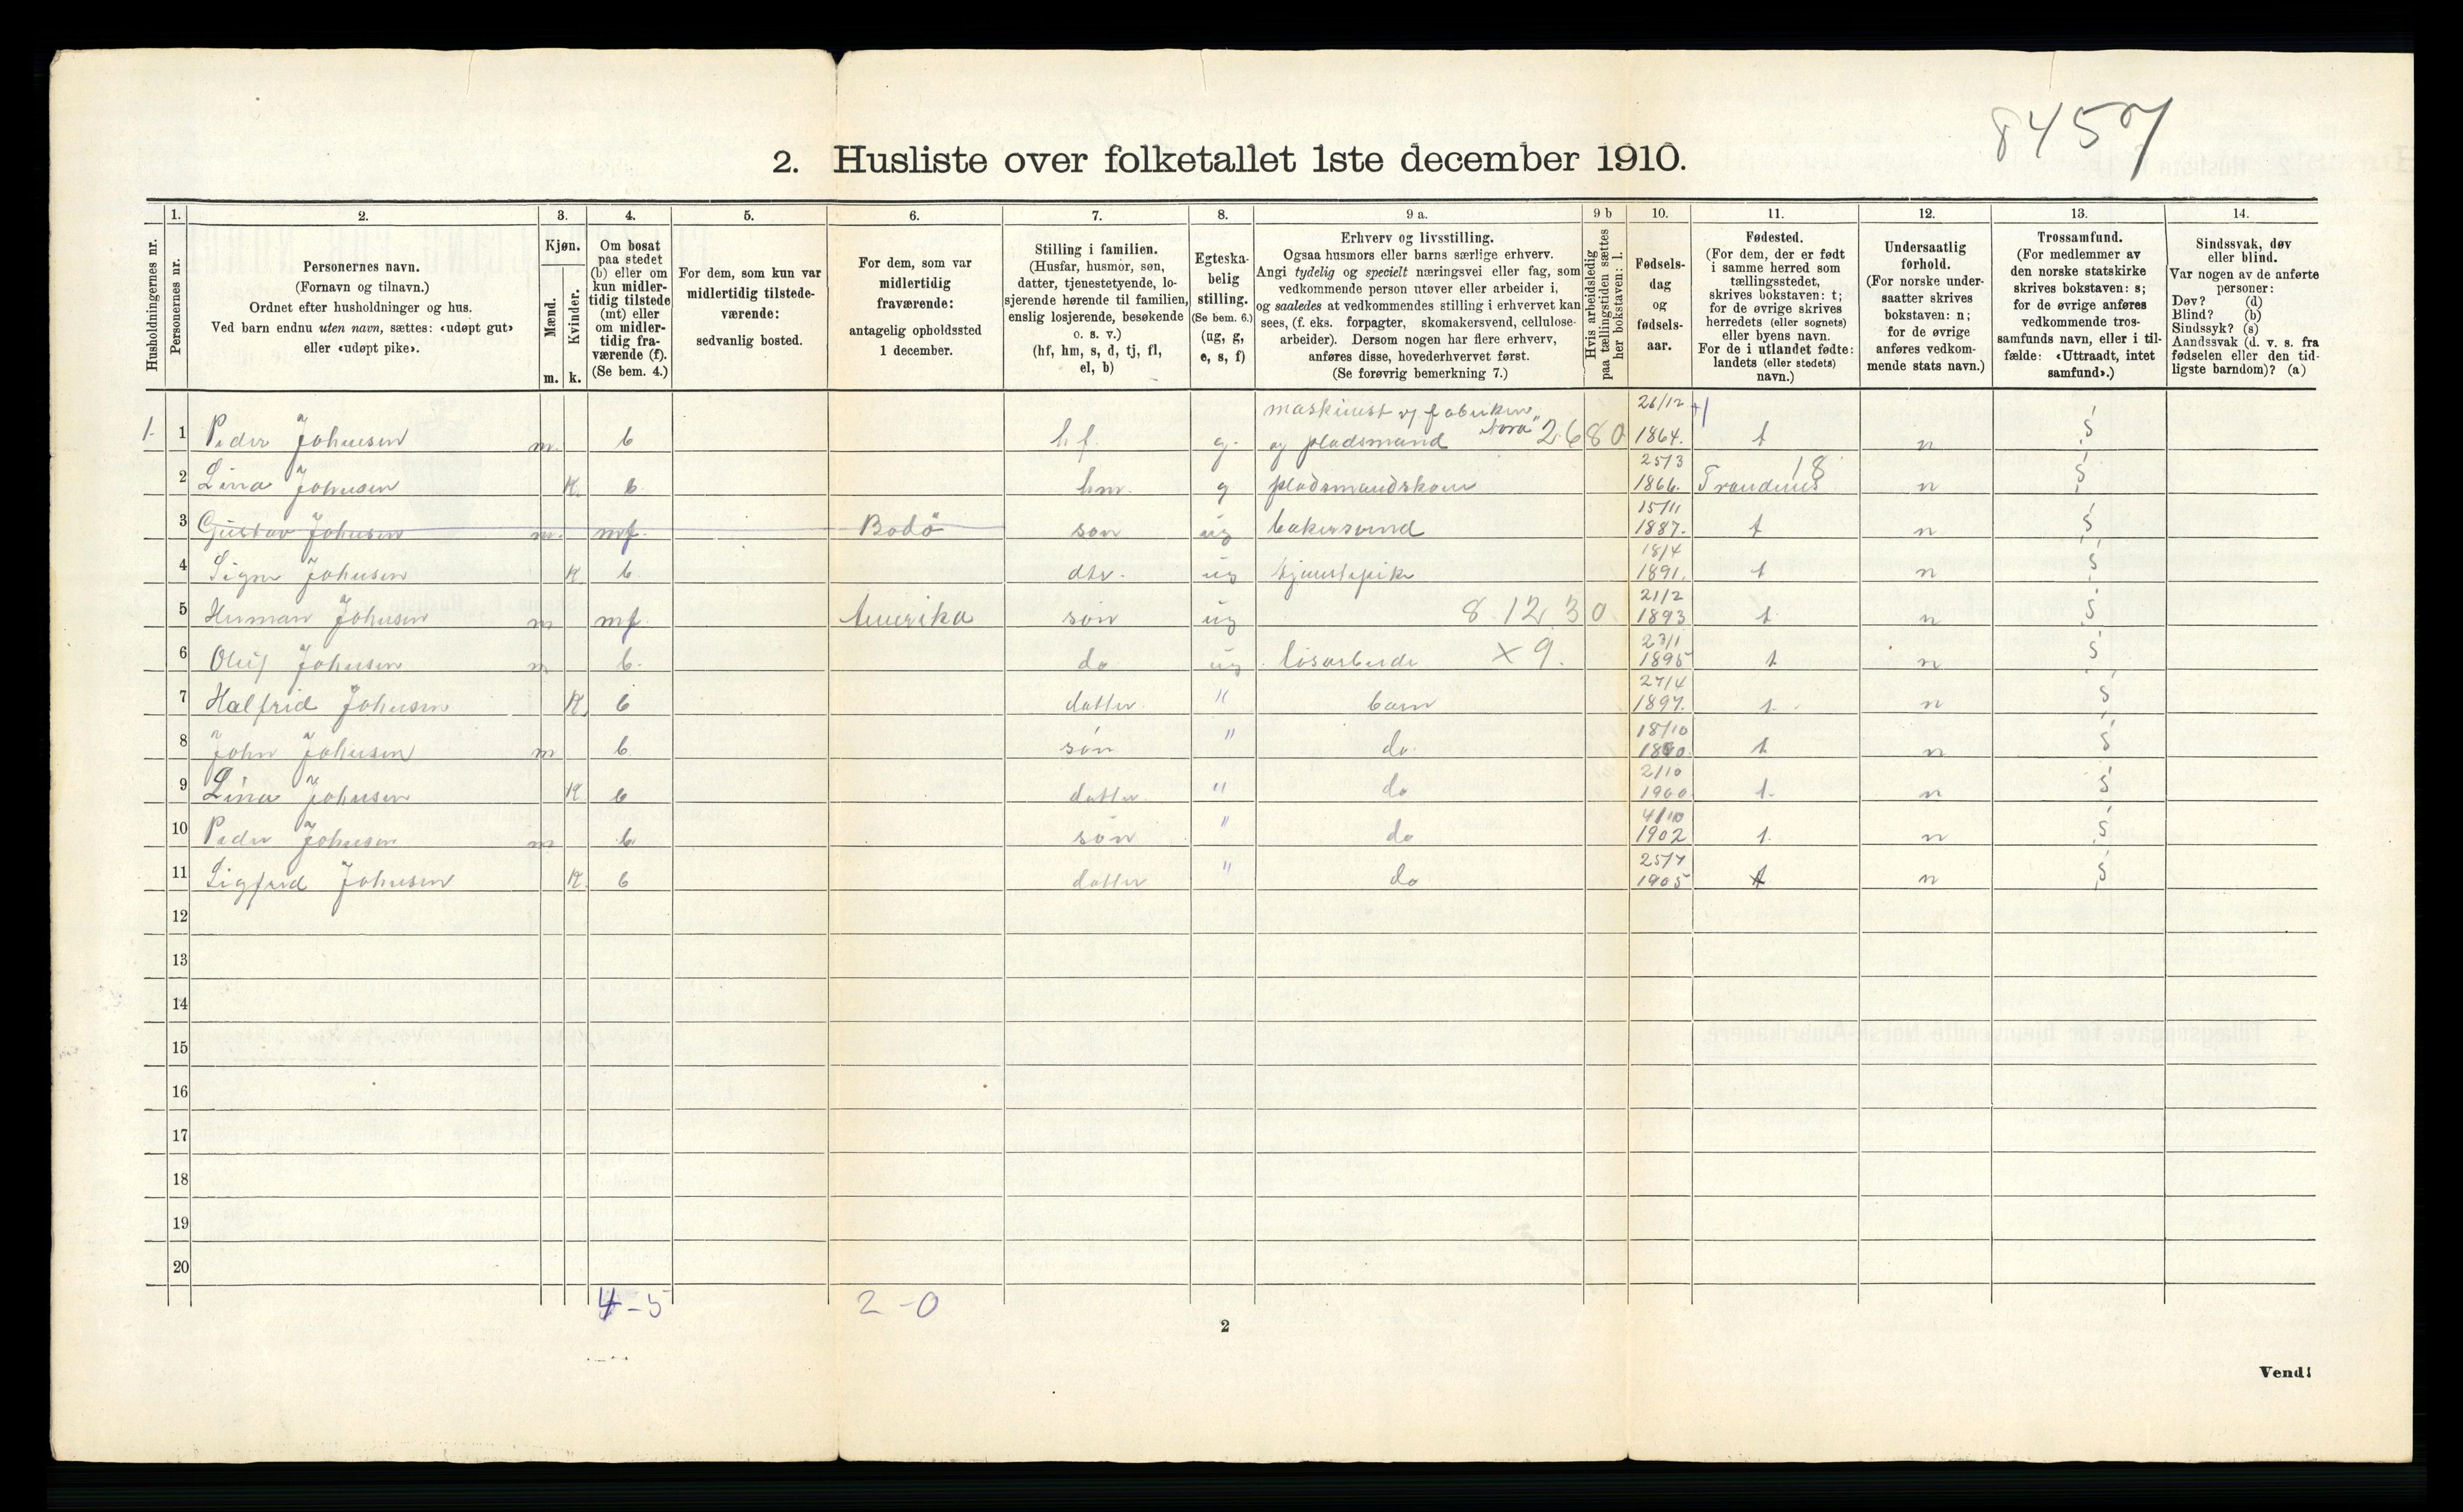 8457
2. Husliste over folketallet 1ste december 1910.
Husholdningernes nr.
1.
Personernes nr.
2.
Personernes navn.
(Fornavn og tilnavn.)
Ordnet efter husholdninger og hus.
Ved barn endnu uten navn, sættes: «udøpt gut»
eller «udøpt pike».
3.
Kjøn.
Mænd.
Kvinder.
m. k.
4.
Om bosat
paa stedet
(b) eller om
kun midler-
tidig tilstede
(mt) eller
om midler-
tidig fra-
værende (f).
(Se bem. 4.)
5.
For dem, som kun var
midlertidig tilstede-
værende:
sedvanlig bosted.
6.
For dem, som var
midlertidig
fraværende:
antagelig opholdssted
1 december.
7.
Stilling i familien.
(Husfar, husmor, søn,
datter, tjenestetyende, lo-
sjerende hørende til familien,
enslig losjerende, besøkende
o. s. v.)
(hf, hm, s, d, tj, fl,
el, b)
8.
Egteska-
belig
stilling.
(Se bem. 6.)
(ug, g,
e, s, f)
9 a.
Erhverv og livsstilling.
Ogsaa husmors eller barns særlige erhverv.
Angi tydelig og specielt næringsvei eller fag, som
vedkommende person utøver eller arbeider i,
og saaledes at vedkommendes stilling i erhvervet kan
sees, (f. eks. forpagter, skomakersvend, cellulose-
arbeider). Dersom nogen har flere erhverv,
anføres disse, hovederhvervet først.
(Se forøvrig bemerkning 7.)
9 b
Hvis arbeidsledig
paa tællingstiden sættes
her bokstaven: l.
10.
Fødsels-
dag
og
fødsels-
aar.
11.
Fødested.
(For dem, der er født
i samme herred som
tællingsstedet,
skrives bokstaven: t;
for de øvrige skrives
herredets (eller sognets)
eller byens navn.
For de i utlandet fødte:
landets (eller stedets)
navn.)
12.
Undersaatlig
forhold.
(For norske under-
saatter skrives
bokstaven: n;
for de øvrige
anføres vedkom-
mende stats navn.)
13.
Trossamfund.
(For medlemmer av
den norske statskirke
skrives bokstaven: s;
for de øvrige anføres
vedkommende tros-
samfunds navn, eller i til-
fælde: «Uttraadt, intet
samfund».)
14.
Sindssvak, døv
eller blind.
Var nogen av de anførte
personer:
Døv? (d)
Blind? (b)
Sindssyk? (s)
Aandssvak (d. v. s. fra
fødselen eller den tid-
ligste barndom)? (a)
maskinist v/ fabriken 26/12
1. 1 Peder Johnsen m. b hf. g. og pladsmand "Nora" 2680 1864. t n S
25/3 18
2 Lina Johnsen K. b. hm. g pladsmandskone 1866. Trondenes n S
15/11
3 Gustav Johnsen m. mf. Bodö søn ug bakersvend 1887. t n S
18/4
4 Signe Johnsen K b dtr. ug tjenstepike 1891. t n S
21/2
5 Herman Johnsen m mf. Amerika søn ug 8.12.30 1893 t n S
23/1
6 Oluf Johnsen m b. do ug løsarbeide X 9. 1895 t n S
27/4
7 Halfrid Johnsen K. b datter " barn 1897. t. n S
18/10
8 John Johnsen m b. søn " do. t n S
2/10
9 Lina Johnsen K b datter. " do 1900 t. n S
4/10
10 Peder Johnsen m b. søn " do 1902 t. n S
25/7
11 Sigfrid Johnsen K. b datter " do 1905 t n S
12
13
14
15
16
17
18
19
20
4-5 2-0
2
Vend!